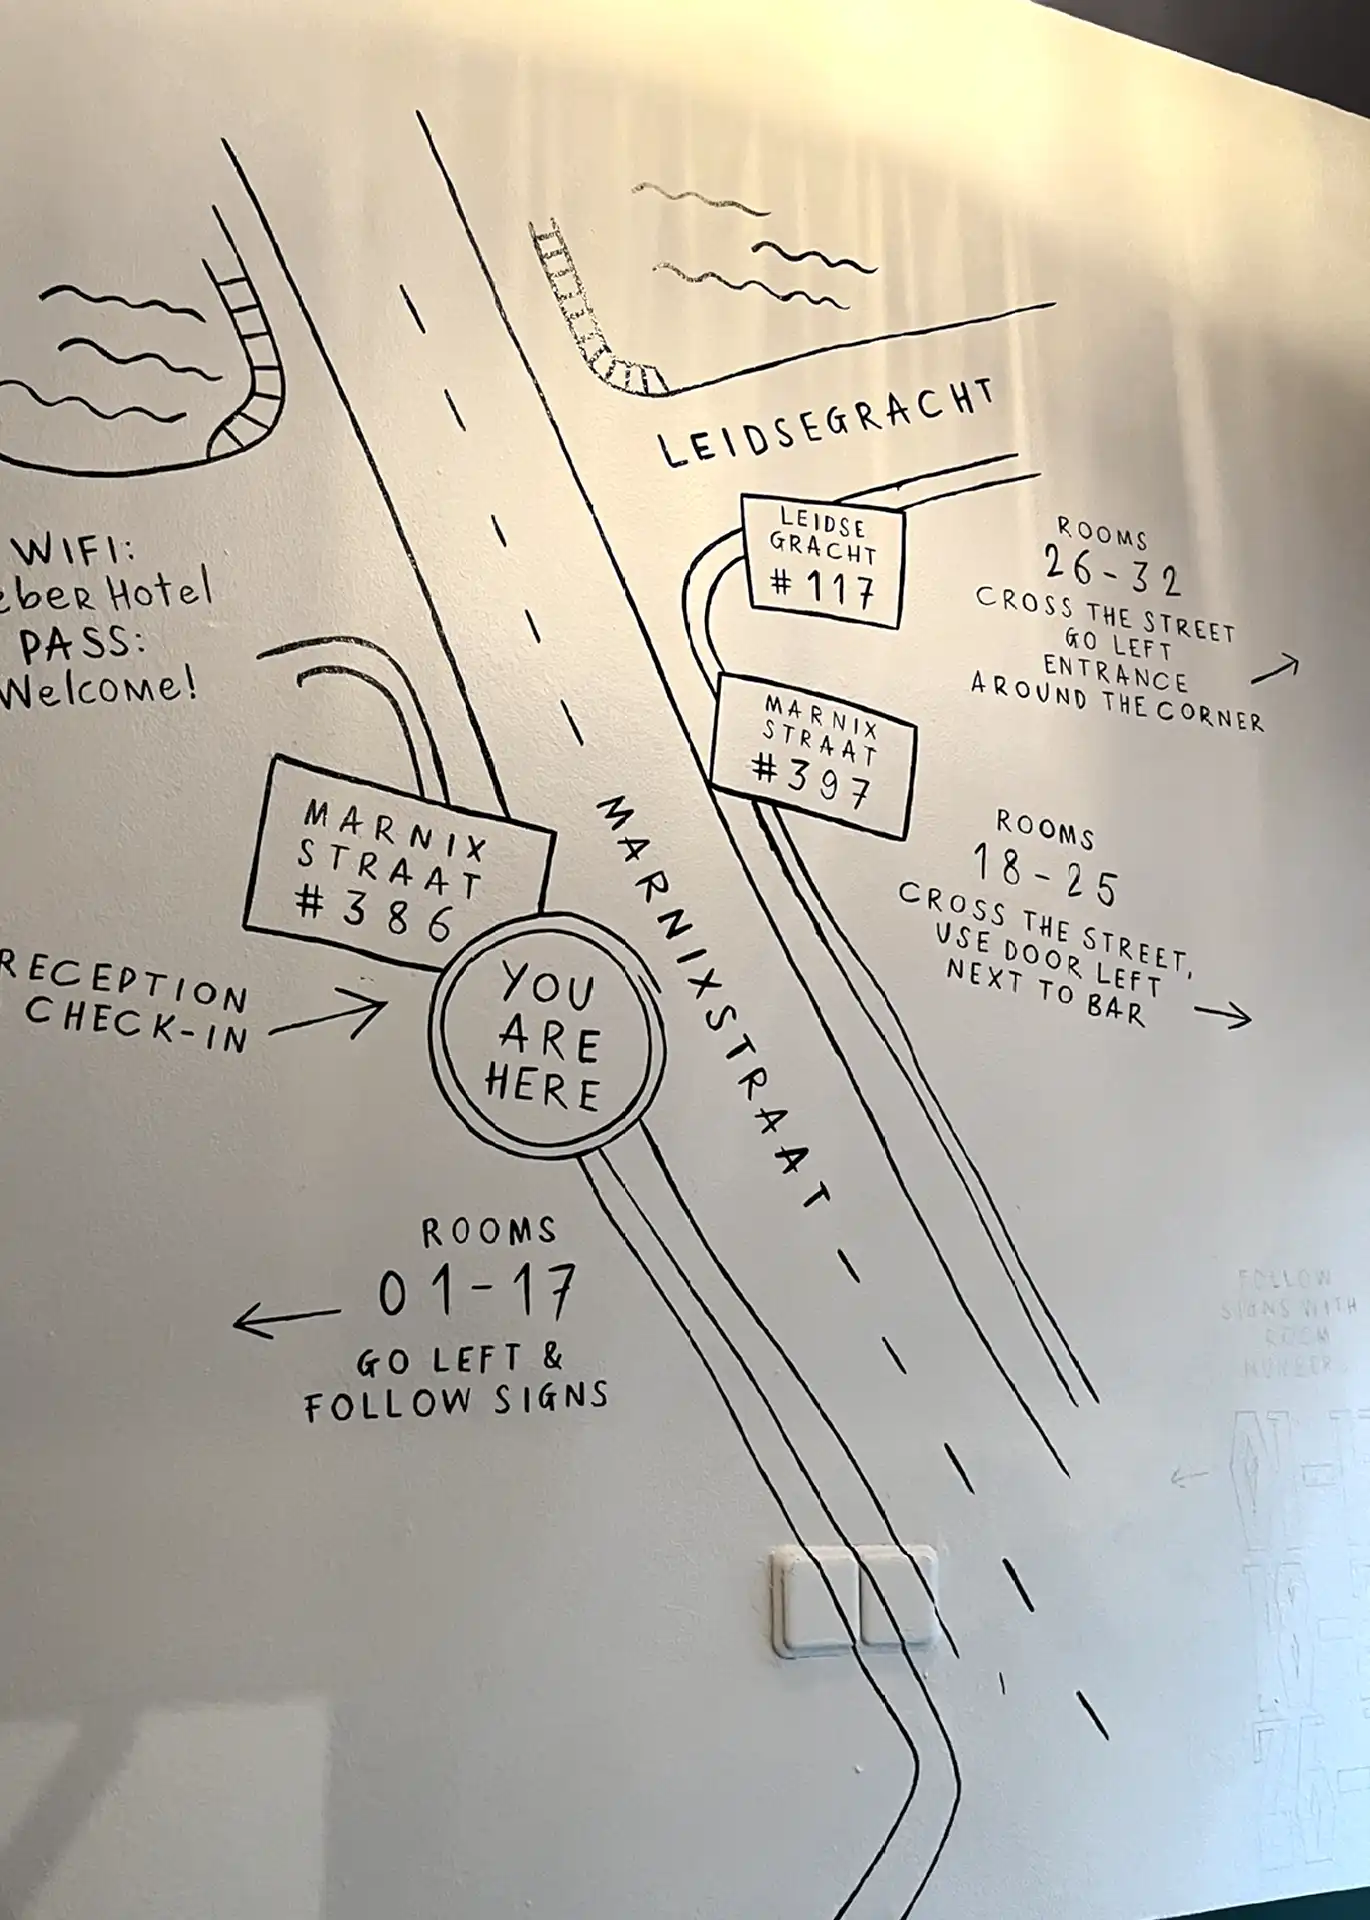 LEIDSEGRACHT
WIFI:
Hotel
PASS:
Welcome!
LEIDSE
GRACHT
#117
ROOMS
26-32
CROSS THE STREET
GO LEFT
ENTRANCE
AROUND THE CORNER
MARNIX
STRAAT
#397
ROOMS
18-25
CROSS THE STREET,
USE DOOR LEFT
NEXT TO BAR
MARNIX
STRAAT
#386
MARNIXSTRAAT
RECEPTION
CHECK-IN
YOU
ARE
HERE
ROOMS
01-17
GO LEFT &
FOLLOW SIGNS
FOLLOW
SIGNS WITH
ROOM
NUMBER